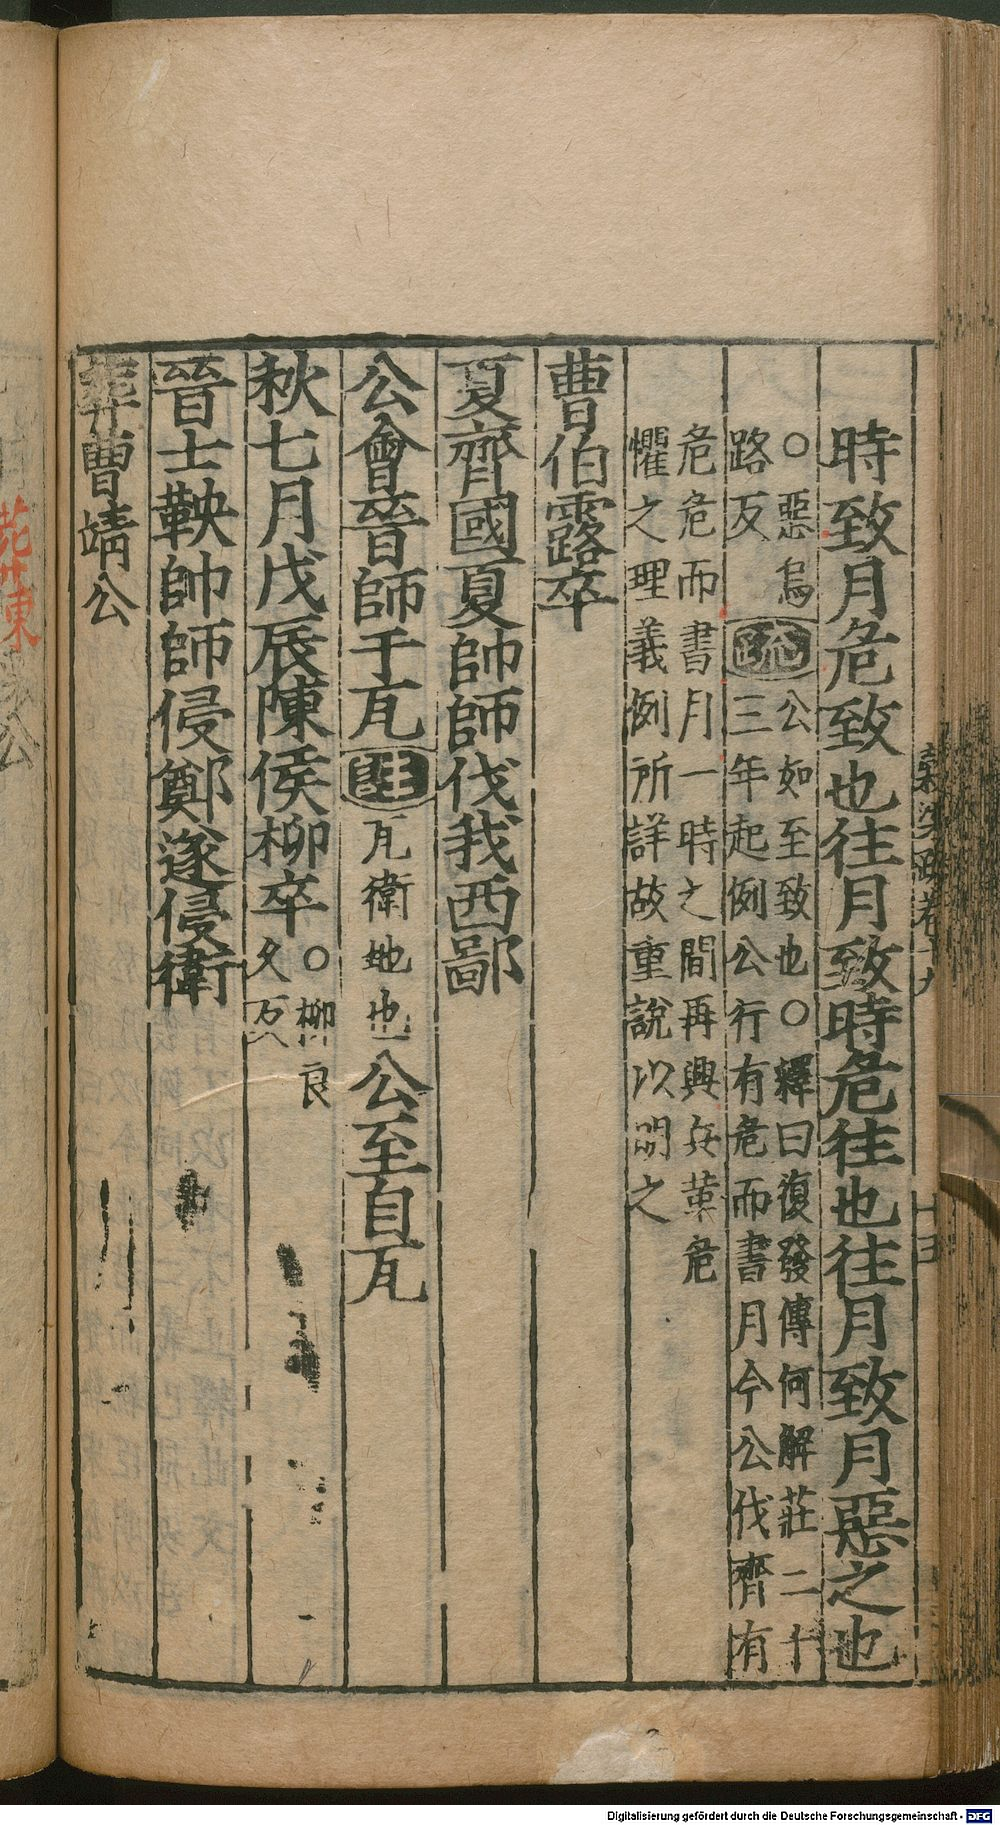 時致月危致也往月致時危往也往月致月惡之也
○惡烏
路反
疏
公如至致也○釋曰復發傳何解莊二十
三年起例公行有危而書月今公伐齊有
危危而書月一時之間再興兵革危
懼之理義例所詳故重說以明之
曹伯露卒
夏齊國夏帥師伐我西鄙
公會晉師于瓦 註 瓦衛地也 公至自瓦
秋七月戊辰陳侯柳卒
○柳良
久反
晉士鞅帥師侵鄭遂侵衛
葬曹靖公
穀梁疏卷十九
十五
Digitalisierung gefördert durch die Deutsche Forschungsgemeinschaft - DFG